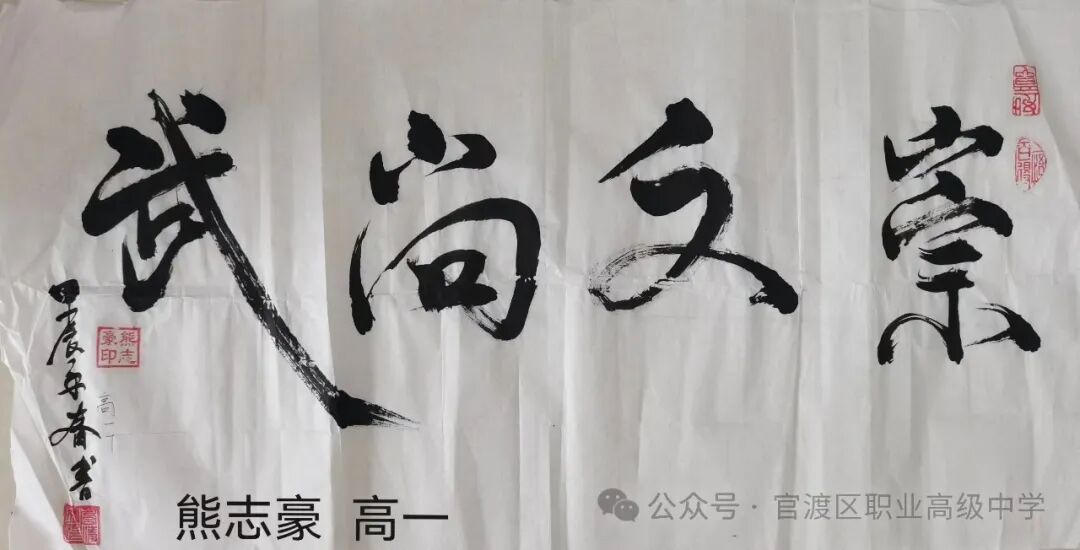 崇文尚武
甲辰年春书
熊志豪印
高一
熊志豪 高一
公众号·官渡区职业高级中学